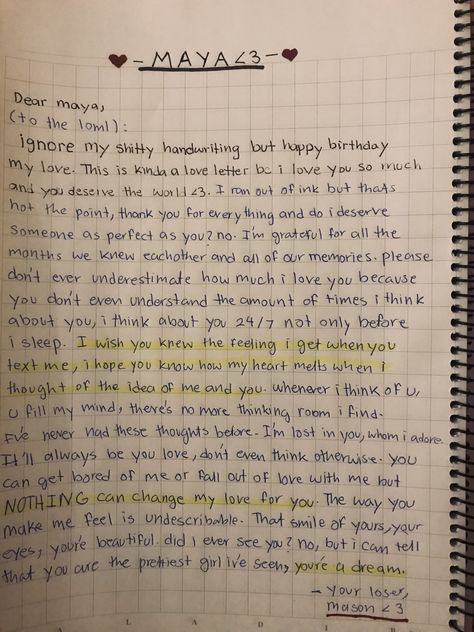 - MAYA<3 -
Dear maya,
(to the loml):
ignore my shitty handwriting but happy birthday
my love. This is kinda a love letter bc i love you so much
and you deserve the world <3. I ran out of ink but thats
not the point, thank you for everything and do i deserve
someone as perfect as you? no. I'm grateful for all the
months we knew eachother and all of our memories. please
don't ever underestimate how much i love you because
you don't even understand the amount of times i think
about you, i think about you 24/7 not only before
i sleep. I wish you knew the feeling i get when you
text me, i hope you know how my heart melts when i
thought of the idea of me and you. whenever i think of u,
u fill my mind, there's no more thinking room i find.
I've never had these thoughts before. I'm lost in you, whom i adore.
It'll always be you love, don't even think otherwise. you
can get bored of me or fall out of love with me but
NOTHING can change my love for you. The way you
make me feel is undescribable. That smile of yours, your
eyes, you're beautiful. did I ever see you? no, but i can tell
that you are the prettiest girl i've seen, you're a dream.
- your loser,
mason <3